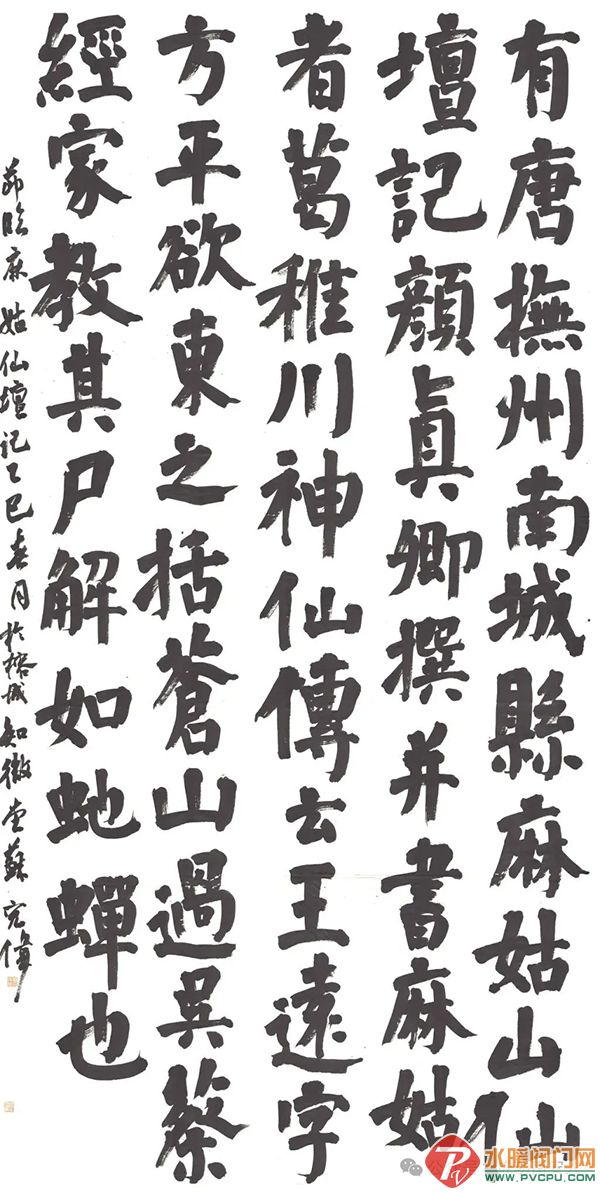 有唐撫州南城縣麻姑山仙
壇記顔眞卿撰并書麻姑
者葛稚川神仙傳云王遠字
方平欲東之括蒼山過吳蔡
經家教其尸解如虵蟬也
節臨麻姑仙壇記乙巳春月於榕城知微堂蘇
水暖阀门网
WWW.PVCPU.COM